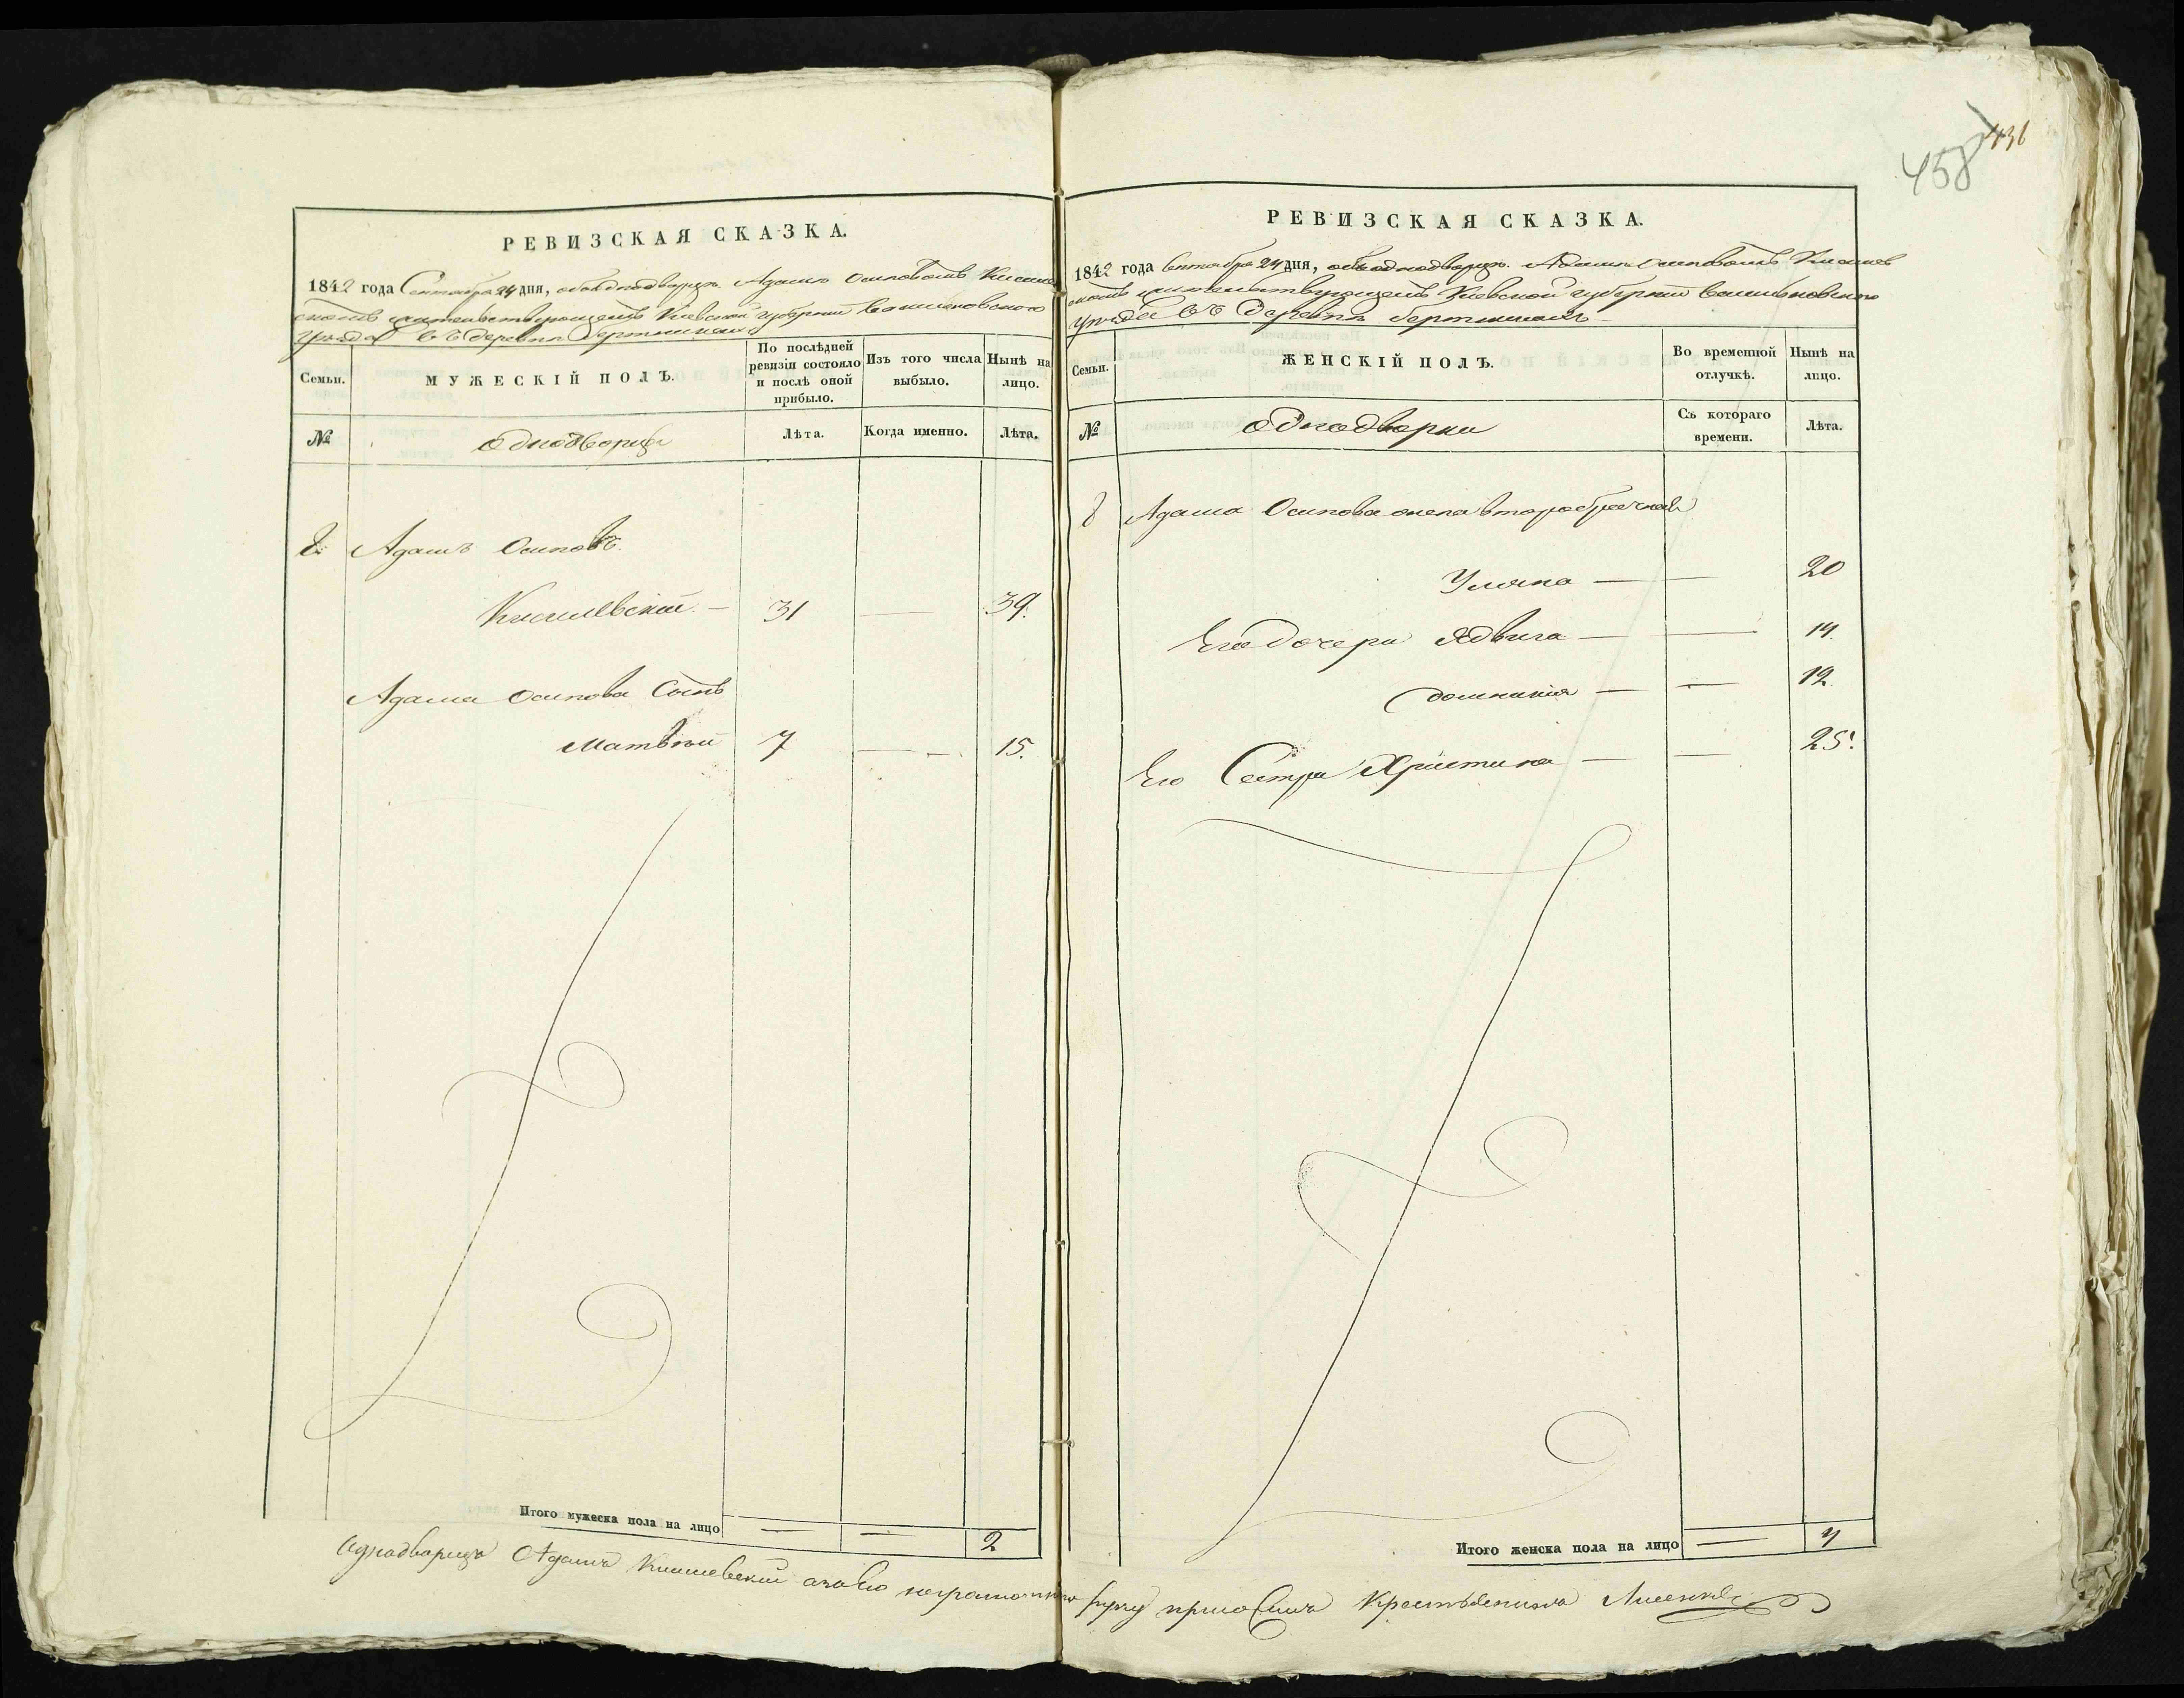 458
436
РЕВИЗСКАЯ СКАЗКА.
1842 года Сентября 24 дня, Адамѣ Осиповомъ
жительствующемъ Кіевской губерніи
уѣзда въ деревнѣ
Семьи.
МУЖЕСКІЙ ПОЛЪ.
По послѣдней ревизіи состояло и послѣ оной прибыло.
Изъ того числа выбыло.
Нынѣ на лицо.
№
однодворцы
Лѣта.
Когда именно.
Лѣта.
8 Адамъ Осиповъ
Кисилевскій — 31 — 39.
Адама Осипова Сынъ
Матвѣй 7 — — 15.
Итого мужеска пола на лицо — — 2
РЕВИЗСКАЯ СКАЗКА.
1842 года Сентября 24 дня, Адамѣ Осиповомъ
жительствующемъ Кіевской губерніи
уѣзда въ деревнѣ
Семьи.
ЖЕНСКІЙ ПОЛЪ.
Во временной отлучкѣ.
Нынѣ на лицо.
№
однодворки
Съ котораго времени.
Лѣта.
8 Адама Осипова жена второбрачная
Уляна — — 20
Его дочери Ядвига — — 14
— — 12.
Его Сестра Христина — — 25.
Итого женска пола на лицо — 4
Адамъ Кисилевскій а за его неграмотного